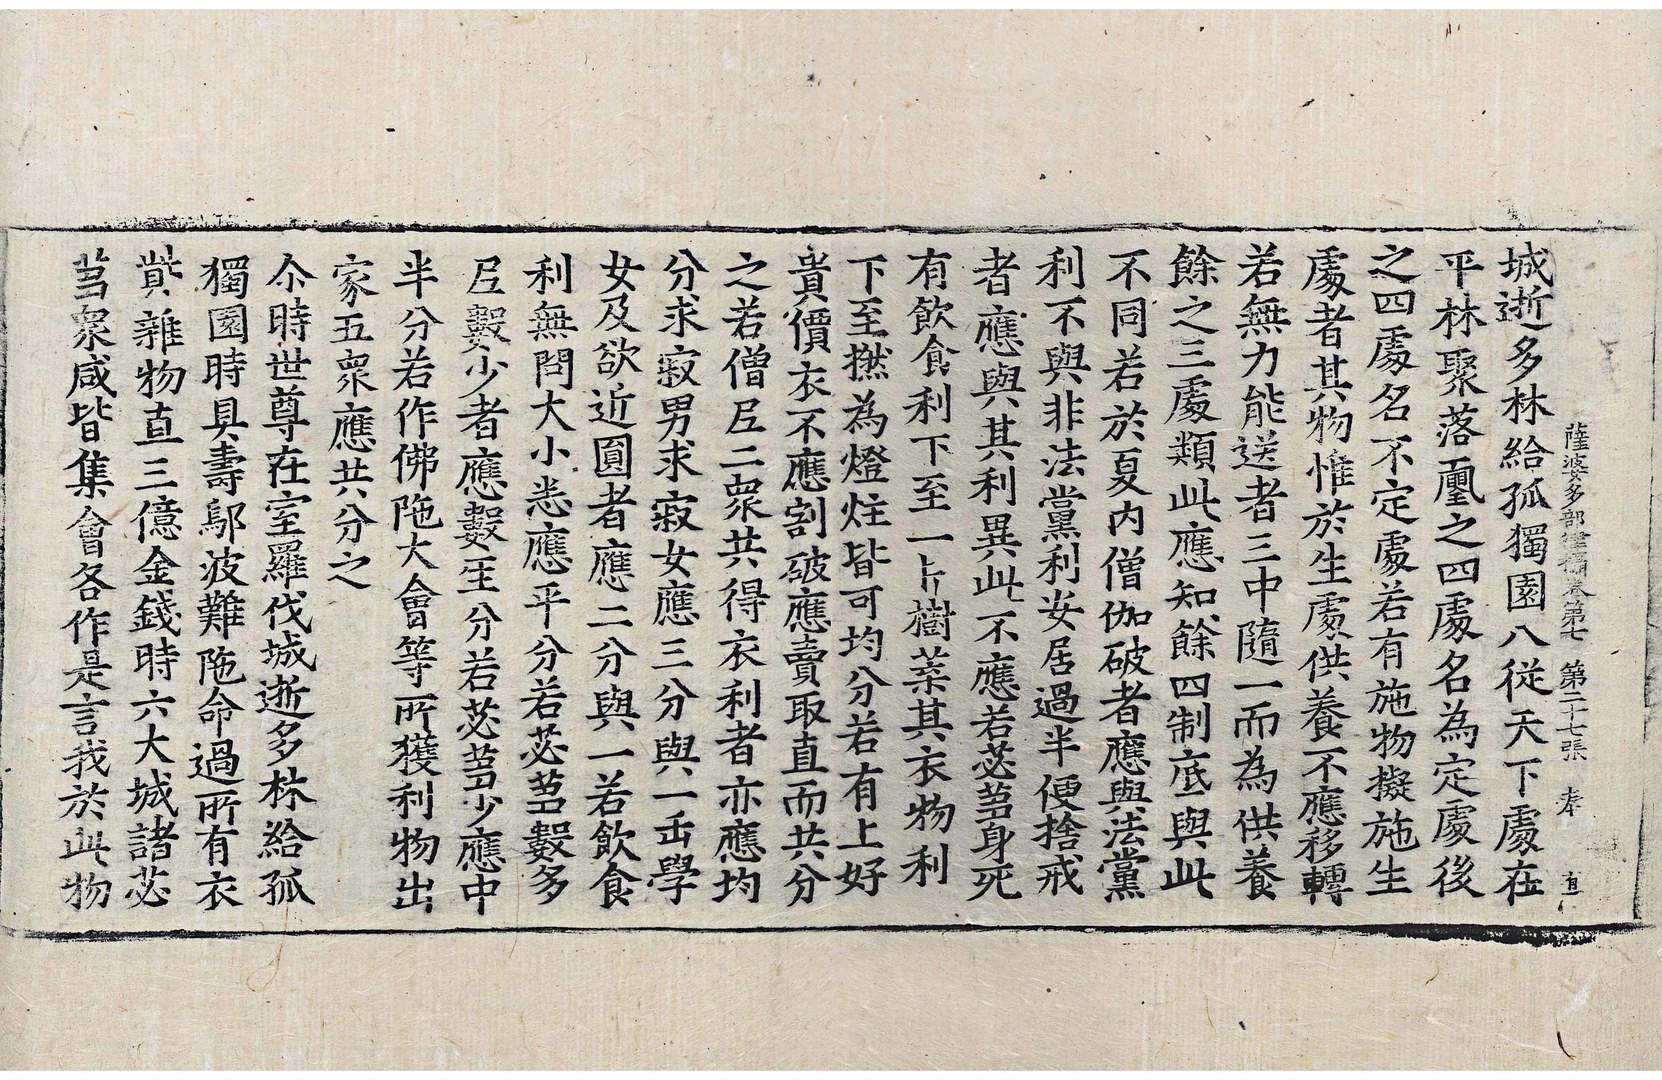 薩婆多部律攝卷第七 第二十七張 奉
城逝多林給孤獨園八從天下處在
平林聚落重之四處名為定處後
之四處名不定處若有施物擬施生
處者其物惟於生處供養不應移轉
若無力能送者三中隨一而為供養
餘之三處類此應知餘四制底與此
不同若於夏內僧伽破者應與法黨
利不與非法黨利安居過半便捨戒
者應與其利異此不應若苾芻身死
有飲食利下至一片樹葉其衣物利
下至撚為燈炷皆可均分若有上好
貴價衣不應割破應賣取直而共分
之若僧尼二眾共得衣利者亦應均
分求寂男求寂女應三分與一正學
女及欲近圓者應二分與一若飲食
利無問大小悉應平分若苾芻數多
尼數少者應數至分若苾芻少應中
半分若作佛陁大會等所獲利物出
家五眾應共分之
尒時世尊在室羅伐城逝多林給孤
獨園時具壽鄔波難陁命過所有衣
貲雜物直三億金錢時六大城諸苾
芻眾咸皆集會各作是言我於此物